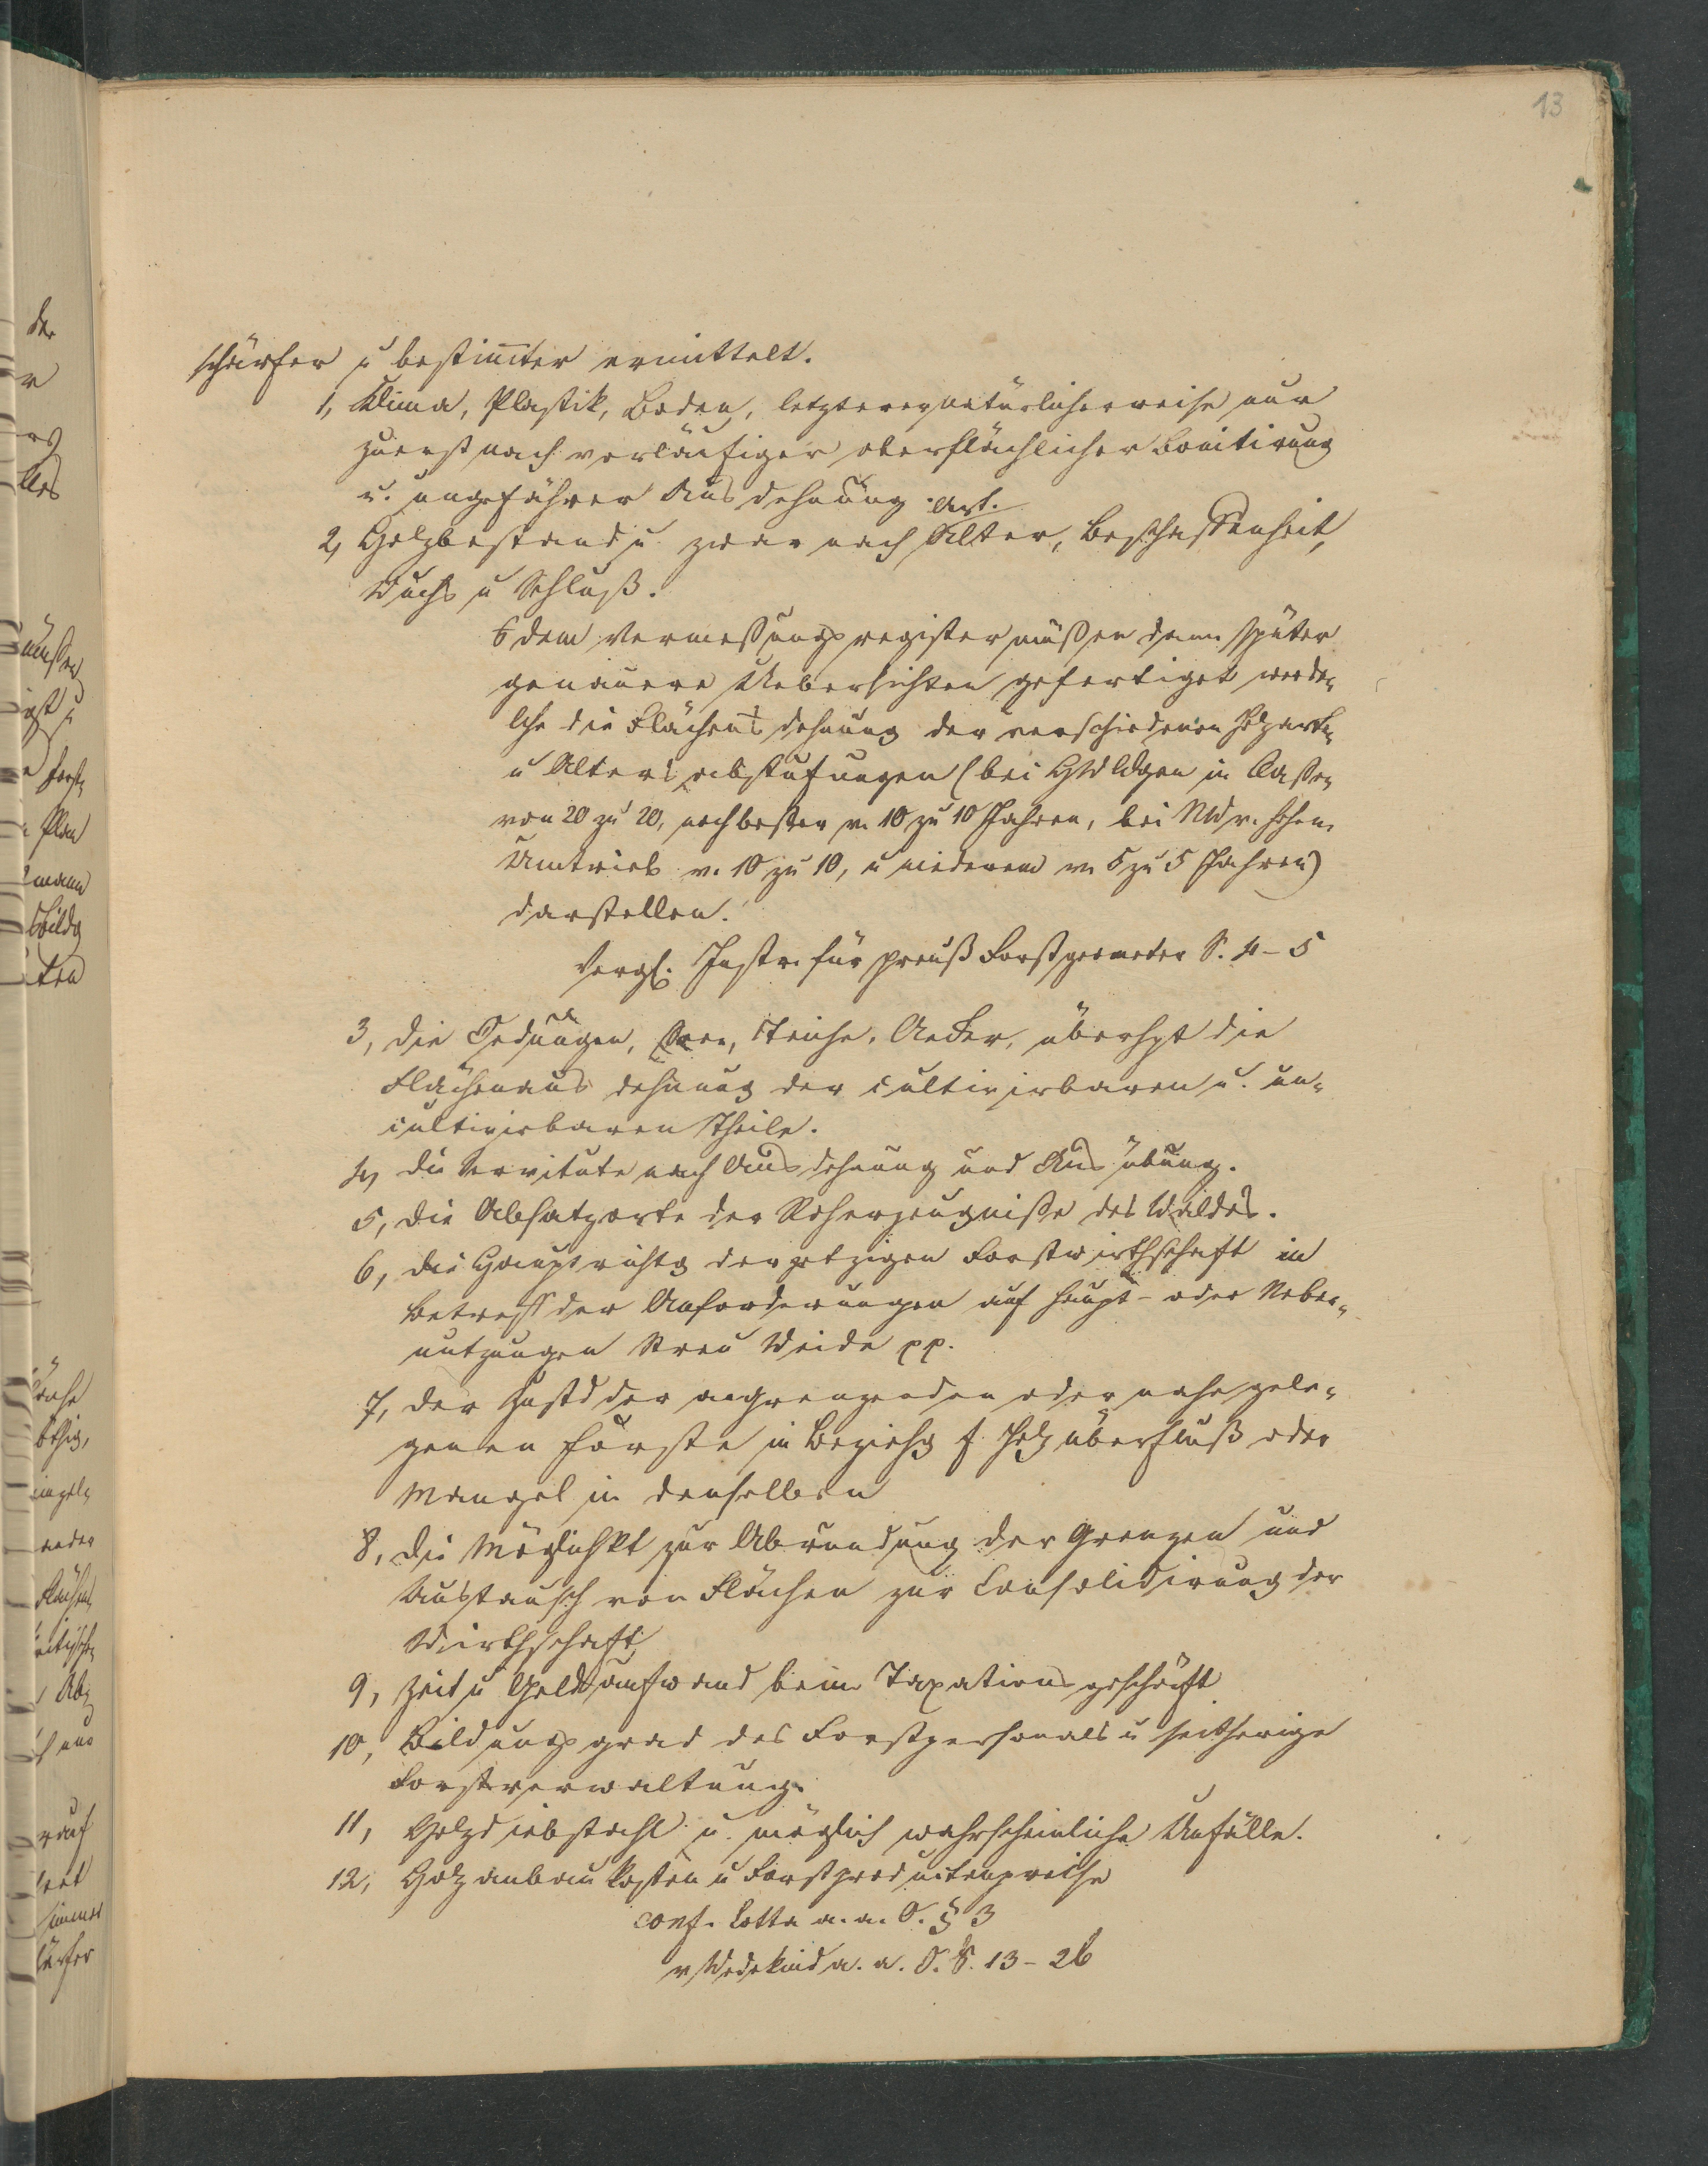 13
schärfer u bestimter ermittelt.
1, Klima, Plastik, Boden, letzterer natürlicherweise nur
zuerst nach vorläufiger oberflächlicher Bonitirung
u. ungefährer Ausdehnung.
Art.
2, Holzbestand u. zwar nach Alter, Beschaffenheit,
Wuchs u Schluß.
dem Vermessungsregister müßen dann später
genauere Uebersichten gefertiget werden
die Flächen dehnung der verschiedenen Holzarten
u Altersabstufungen (bei in Classen
von 20 zu 20, noch besser v. 10 zu 10 Jahren, bei NW v. hohem
Umtrieb v. 10 zu 10, u niederem v. 5 zu 5 Jahren)
darstellen.
Vergl. Instr. für preuß Forstgeometer S. 4-5
3, die Oedungen, Seen, Teiche, Aecker, überhpt die
Flächenausdehnung der cultivirbaren u. un-
cultivirbaren Theile.
4, die Servitute nach Ausdehnung und Ausübung.
5, die Absatzorte der Roherzeugniße des Waldes.
6, die Hauptrichtg der jetzigen Forstwirthschaft in
Betreff der Anforderungen auf Haupt- oder Neben-
nutzungen Streu Weide pp.
7, der Zustd der angrenzenden oder nahe gele-
genen Forste in Beziehg f. Holzüberfluß oder
Mangel in denselben
8, die Möglichkt zur Abrundung der Grenzen und
Austausch von Flächen zur Consolidirung der
Wirthschaft
9, Zeit u Geldaufwand beim Taxationsgeschäft
10, Bildungsgrad des Forstpersonals u seitherige
Forstverwaltung.
11, Holzdiebstahl u. möglich wahrscheinliche Unfälle.
12, Holzanbaukosten u Forstproductenpreise
conf. Cotta a. a. O. § 3
v Wedekind a. a. O. S. 13-26